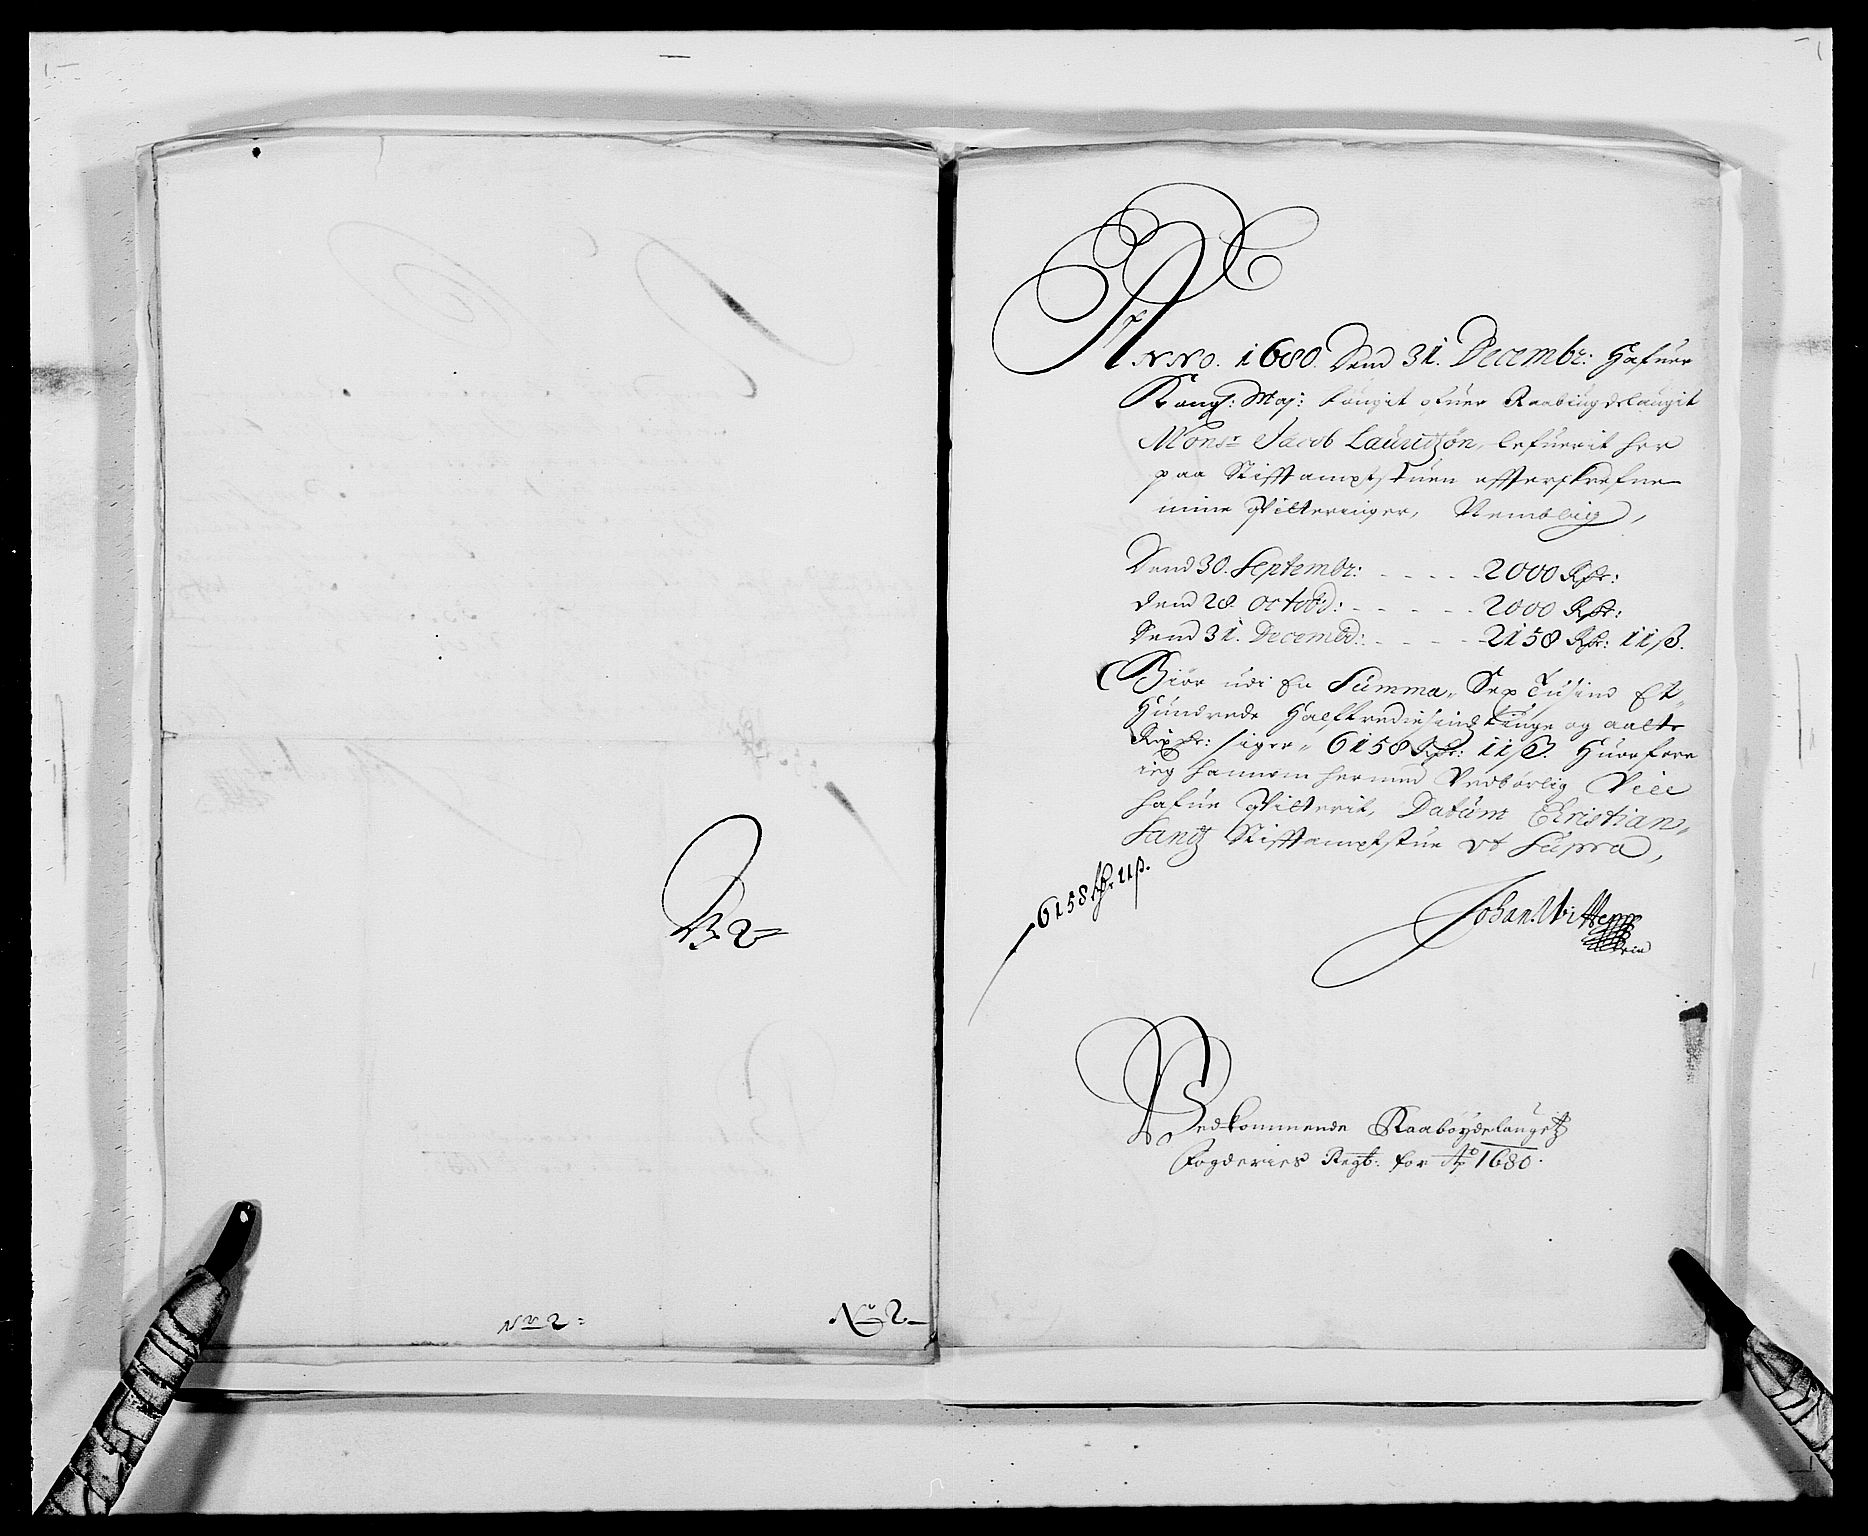 B 2
No 2
No 2
Anno. 1680. Dend 31. Decembr: Hafuer
Kongl: Maj: fougit ofuer Raabiugdelaugit
Monsr Jacob Lauridzøn, lefuerit her
paa Stifftamptstuen effterskrefne
mine Qvitteringer, Nemblig,
Dend 30. Septembr: - - - - 2000 Rdr:
dend 28. Octobr: - - - - 2000 Rdr:
Dend 31. Decembr: - - - - 2158 Rdr: 11 ß.
Giør udi En Summa, Sex Tusind Et
Hundrede Halftrediesindtiuge og aatte
Rixdr: siger, 6158 Rdr: 11 ß. Huorfore
ieg hannem hermed Vedbørlig Viis
hafue Qvitterit, Datum Christian,,
Sandz Stifftamptstue ut Supra,
6158 Rdr 11 ß.
Johan Witten
Vedkommende Raabøydelaugetz
Fogderies Regb: for Ao 1680.